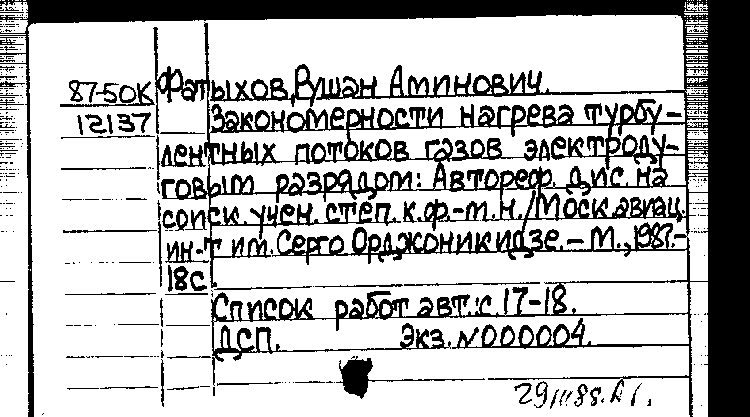 87-50К Фатыхов, Рушан Аминович.
12137 Закономерности нагрева турбу-
лентных потоков газов электроду-
говым разрядом: Автореф. дис. на
соиск. учен. степ. к.ф.-м.н./Моск. авиац.
ин-т им. Серго Орджоникидзе. – М., 1987.-
18с.
Список работ авт.: с. 17-18.
ДСП. Экз. N000004.